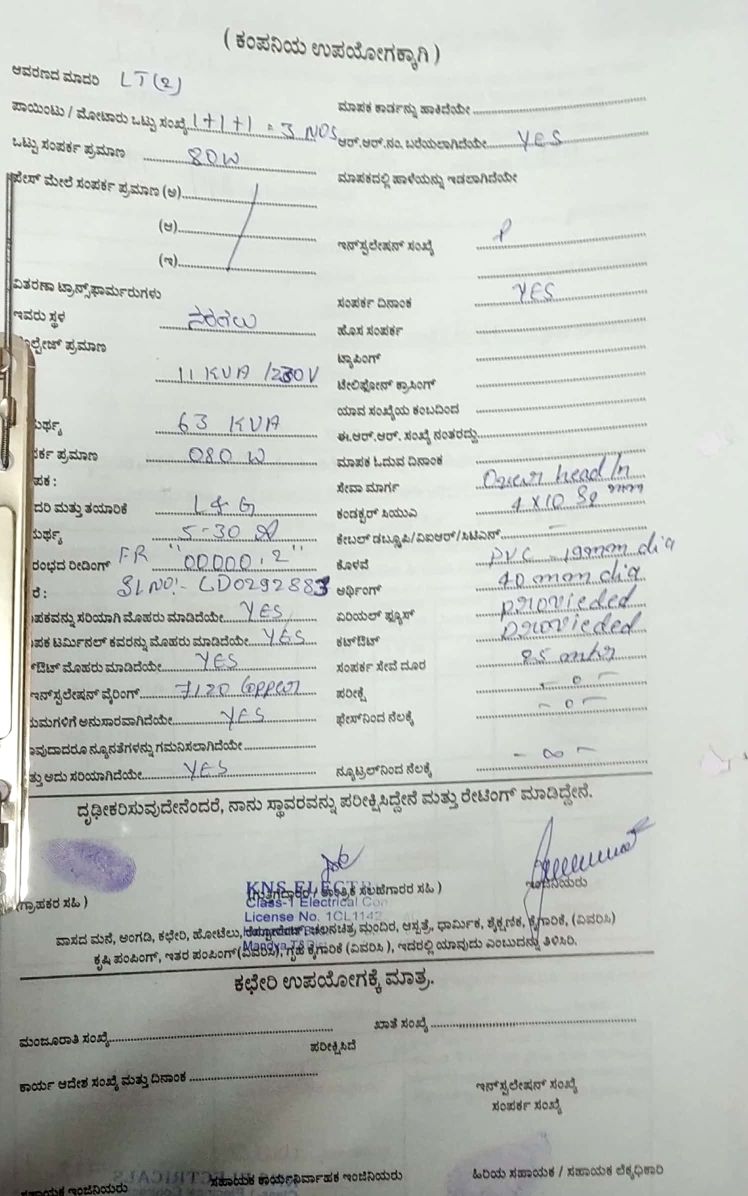 ( ಕಂಪನಿಯ ಉಪಯೋಗಕ್ಕಾಗಿ )
ಆವರಣದ ಮಾದರಿ LT(2)
ಮಾಪಕ ಕಾರ್ಡನ್ನು ಹಾಕಿದೆಯೇ
ಪಾಯಿಂಟು / ಮೋಟಾರು ಒಟ್ಟು ಸಂಖ್ಯೆ 1+1+1 = 3 NOS
ಆರ್.ಆರ್.ನಂ. ಬರೆಯಲಾಗಿದೆಯೇ YES
ಒಟ್ಟು ಸಂಪರ್ಕ ಪ್ರಮಾಣ 80W
ಮಾಪಕದಲ್ಲಿ ಹಾಳೆಯನ್ನು ಇಡಲಾಗಿದೆಯೇ
ಫೇಸ್ ಮೇಲೆ ಸಂಪರ್ಕ ಪ್ರಮಾಣ (ಅ)
(ಆ)
ಇನ್‌ಸ್ಟಲೇಷನ್ ಸಂಖ್ಯೆ
(ಇ)
ವಿತರಣಾ ಟ್ರಾನ್ಸ್‌ಫಾರ್ಮರುಗಳು
ಸಂಪರ್ಕ ದಿನಾಂಕ YES
ಇವರು ಸ್ಥಳ
ಹೊಸ ಸಂಪರ್ಕ
ೋಲ್ಟೇಜ್ ಪ್ರಮಾಣ 11 KVA /230V
ಟ್ಯಾಪಿಂಗ್
ಟೆಲಿಫೋನ್ ಕ್ರಾಸಿಂಗ್
ಯಾವ ಸಂಖ್ಯೆಯ ಕಂಬದಿಂದ
ಮರ್ಥ್ಯ 63 KVA
ಈ.ಆರ್.ಆರ್. ಸಂಖ್ಯೆ ನಂತರದ್ದು
ಪರ್ಕ ಪ್ರಮಾಣ 080 W
ಮಾಪಕ ಓದುವ ದಿನಾಂಕ
ಪಕ :
ಸೇವಾ ಮಾರ್ಗ Ovear head In
ದರಿ ಮತ್ತು ತಯಾರಿಕೆ L & G
ಕಂಡಕ್ಟರ್ ಸಿಯುಎ 4 X 10 Sq mm
ಮರ್ಥ್ಯ 5-30 A
ಕೇಬಲ್ ಡಬ್ಲೂಪಿ/ವಿಐಆರ್/ಸಿಟಿಎಸ್ -
ರಂಭದ ರೀಡಿಂಗ್ FR "00000.2"
ಕೊಳವೆ PVC - 19mm dia
ರೆ : SL NO:- LD0292883
ಅರ್ಥಿಂಗ್ 40 mm dia
ಪಕವನ್ನು ಸರಿಯಾಗಿ ಮೊಹರು ಮಾಡಿದೆಯೇ YES
ಏರಿಯಲ್ ಫ್ಯೂಸ್ provieded
ಪಕ ಟರ್ಮಿನಲ್ ಕವರನ್ನು ಮೊಹರು ಮಾಡಿದೆಯೇ YES
ಕಟ್‌ಔಟ್ provieded
್‌ಔಟ್ ಮೊಹರು ಮಾಡಿದೆಯೇ YES
ಸಂಪರ್ಕ ಸೇವೆ ದೂರ 25 mtr
ಇನ್‌ಸ್ಟಲೇಷನ್ ವೈರಿಂಗ್ 7/20 Coppear
ಪರೀಕ್ಷೆ - 0 -
ಯಮಗಳಿಗೆ ಅನುಸಾರವಾಗಿದೆಯೇ YES
ಫೇಸ್‌ನಿಂದ ನೆಲಕ್ಕೆ - 0 -
ಾವುದಾದರೂ ನ್ಯೂನತೆಗಳನ್ನು ಗಮನಿಸಲಾಗಿದೆಯೇ
ತ್ತು ಅದು ಸರಿಯಾಗಿದೆಯೇ YES
ನ್ಯೂಟ್ರಲ್‌ನಿಂದ ನೆಲಕ್ಕೆ - ∞ -
ದೃಢೀಕರಿಸುವುದೇನೆಂದರೆ, ನಾನು ಸ್ಥಾವರವನ್ನು ಪರೀಕ್ಷಿಸಿದ್ದೇನೆ ಮತ್ತು ರೇಟಿಂಗ್ ಮಾಡಿದ್ದೇನೆ.
(ಗ್ರಾಹಕರ ಸಹಿ )
(ಗುತ್ತಿಗೆದಾರರ / ತಾಂತ್ರಿಕ ಸಲಹೆಗಾರರ ಸಹಿ )
ಇಂಜಿನಿಯರು
KNS ELECT
Class-1 Electrical Con
License No. 1CL1142
Mandya
ವಾಸದ ಮನೆ, ಅಂಗಡಿ, ಕಛೇರಿ, ಹೋಟೆಲು, ಚಲನಚಿತ್ರ ಮಂದಿರ, ಆಸ್ಪತ್ರೆ, ಧಾರ್ಮಿಕ, ಶೈಕ್ಷಣಿಕ, ಕೈಗಾರಿಕೆ, (ವಿವರಿಸಿ)
ಕೃಷಿ ಪಂಪಿಂಗ್, ಇತರ ಪಂಪಿಂಗ್(ವಿವರಿಸಿ), ಗೃಹ ಕೈಗಾರಿಕೆ (ವಿವರಿಸಿ ), ಇದರಲ್ಲಿ ಯಾವುದು ಎಂಬುದನ್ನು ತಿಳಿಸಿರಿ.
ಕಛೇರಿ ಉಪಯೋಗಕ್ಕೆ ಮಾತ್ರ.
ಮಂಜೂರಾತಿ ಸಂಖ್ಯೆ
ಖಾತೆ ಸಂಖ್ಯೆ
ಪರೀಕ್ಷಿಸಿದೆ
ಕಾರ್ಯ ಆದೇಶ ಸಂಖ್ಯೆ ಮತ್ತು ದಿನಾಂಕ
ಇನ್‌ಸ್ಟಲೇಷನ್ ಸಂಖ್ಯೆ
ಸಂಪರ್ಕ ಸಂಖ್ಯೆ
ಸಹಾಯಕ ಇಂಜಿನಿಯರು
ಸಹಾಯಕ ಕಾರ್ಯನಿರ್ವಾಹಕ ಇಂಜಿನಿಯರು
ಹಿರಿಯ ಸಹಾಯಕ / ಸಹಾಯಕ ಲೆಕ್ಕಧಿಕಾರಿ